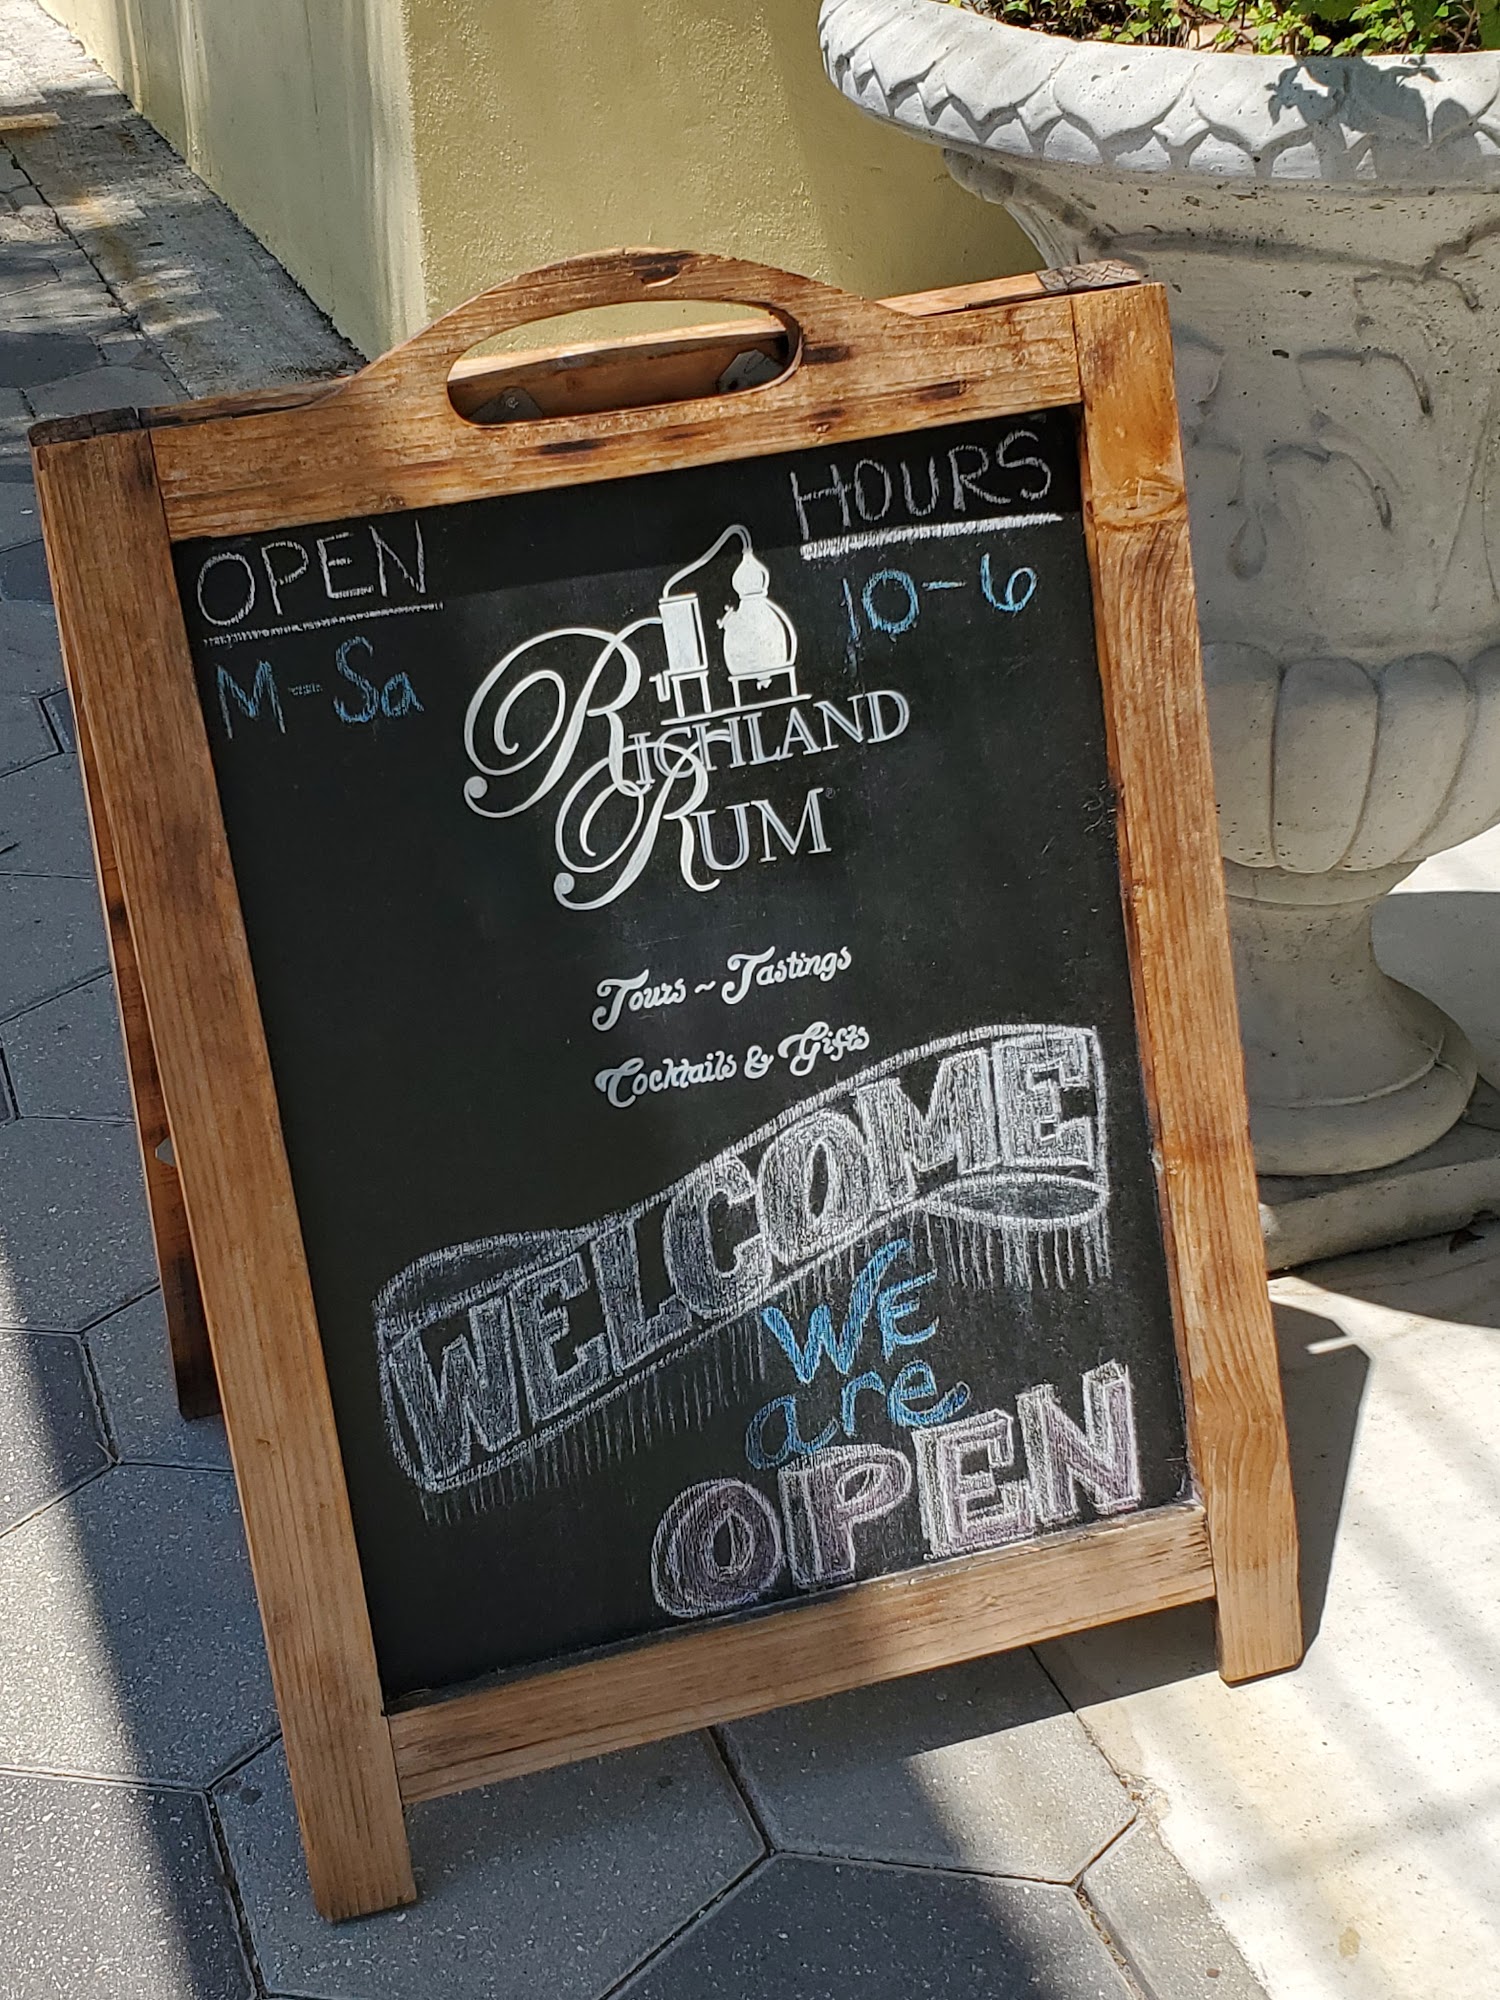 OPEN
M-Sa
HOURS
10-6
RICHLAND
RUM
Tours ~ Tastings
Cocktails & Gifts
WELCOME
WE
are
OPEN